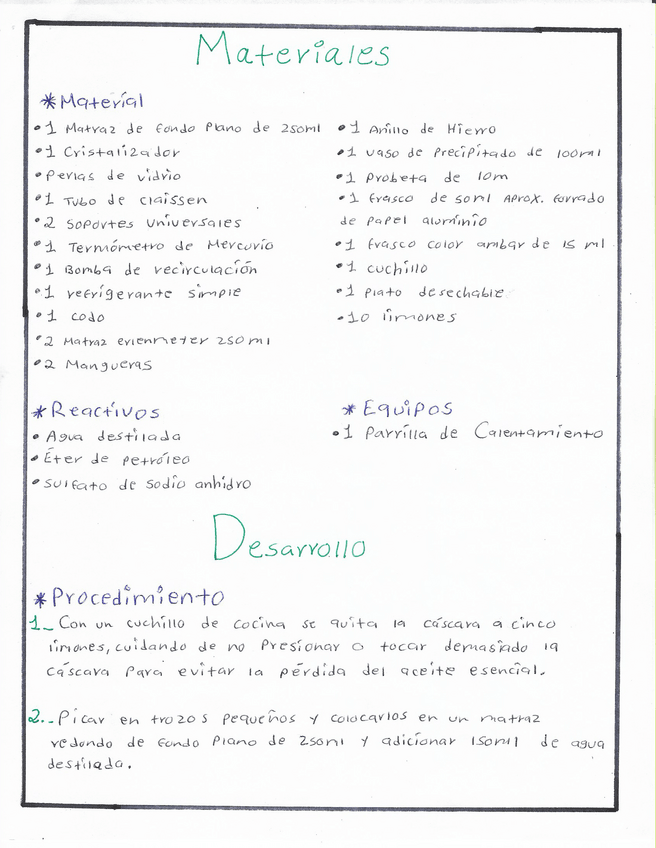 Materiales
*Material
•1 Matraz de fondo Plano de 250ml
•1 Cristalizador
•Perlas de vidrio
•1 Tubo de claissen
•2 Soportes Universales
•1 Termómetro de Mercurio
•1 Bomba de recirculación
•1 refrigerante simple
•1 codo
•2 Matraz erlenmeter 250 ml
•2 Mangueras
•1 Anillo de Hierro
•1 vaso de Precipitado de 100ml
•1 Probeta de 10m
•1 frasco de 50ml Aprox. forrado
de papel aluminio
•1 frasco color ambar de 15 ml
•1 cuchillo
•1 plato desechable
•10 limones
*Reactivos
•Agua destilada
•Éter de petróleo
•sulfato de sodio anhidro
*Equipos
•1 Parrilla de Calentamiento
Desarrollo
*Procedimiento
1._ Con un cuchillo de cocina se quita la cáscara a cinco
limones, cuidando de no Presionar o tocar demasiado la
cáscara Para evitar la pérdida del aceite esencial.
2.- Picar en trozos pequeños y colocarlos en un matraz
redondo de fondo Plano de 250ml y adicionar 150ml de agua
destilada.